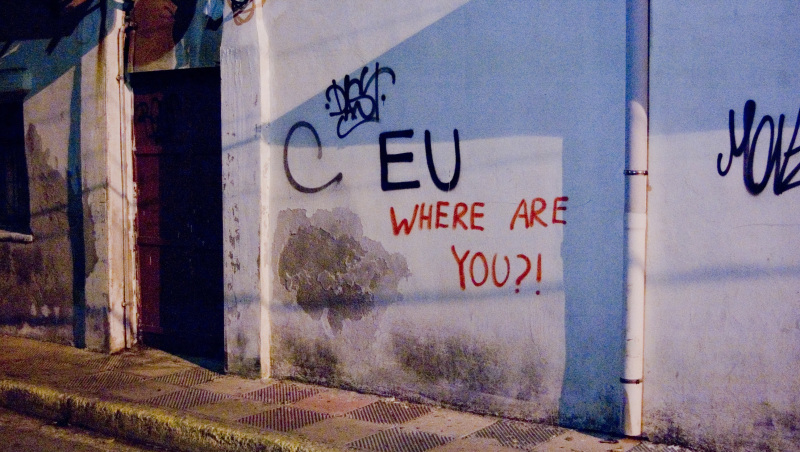 C EU
WHERE ARE
YOU?!